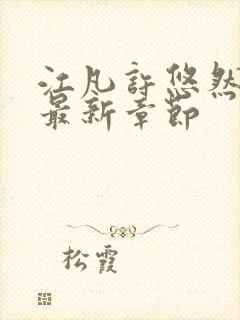 江凡許悠然
最新章節
松霞